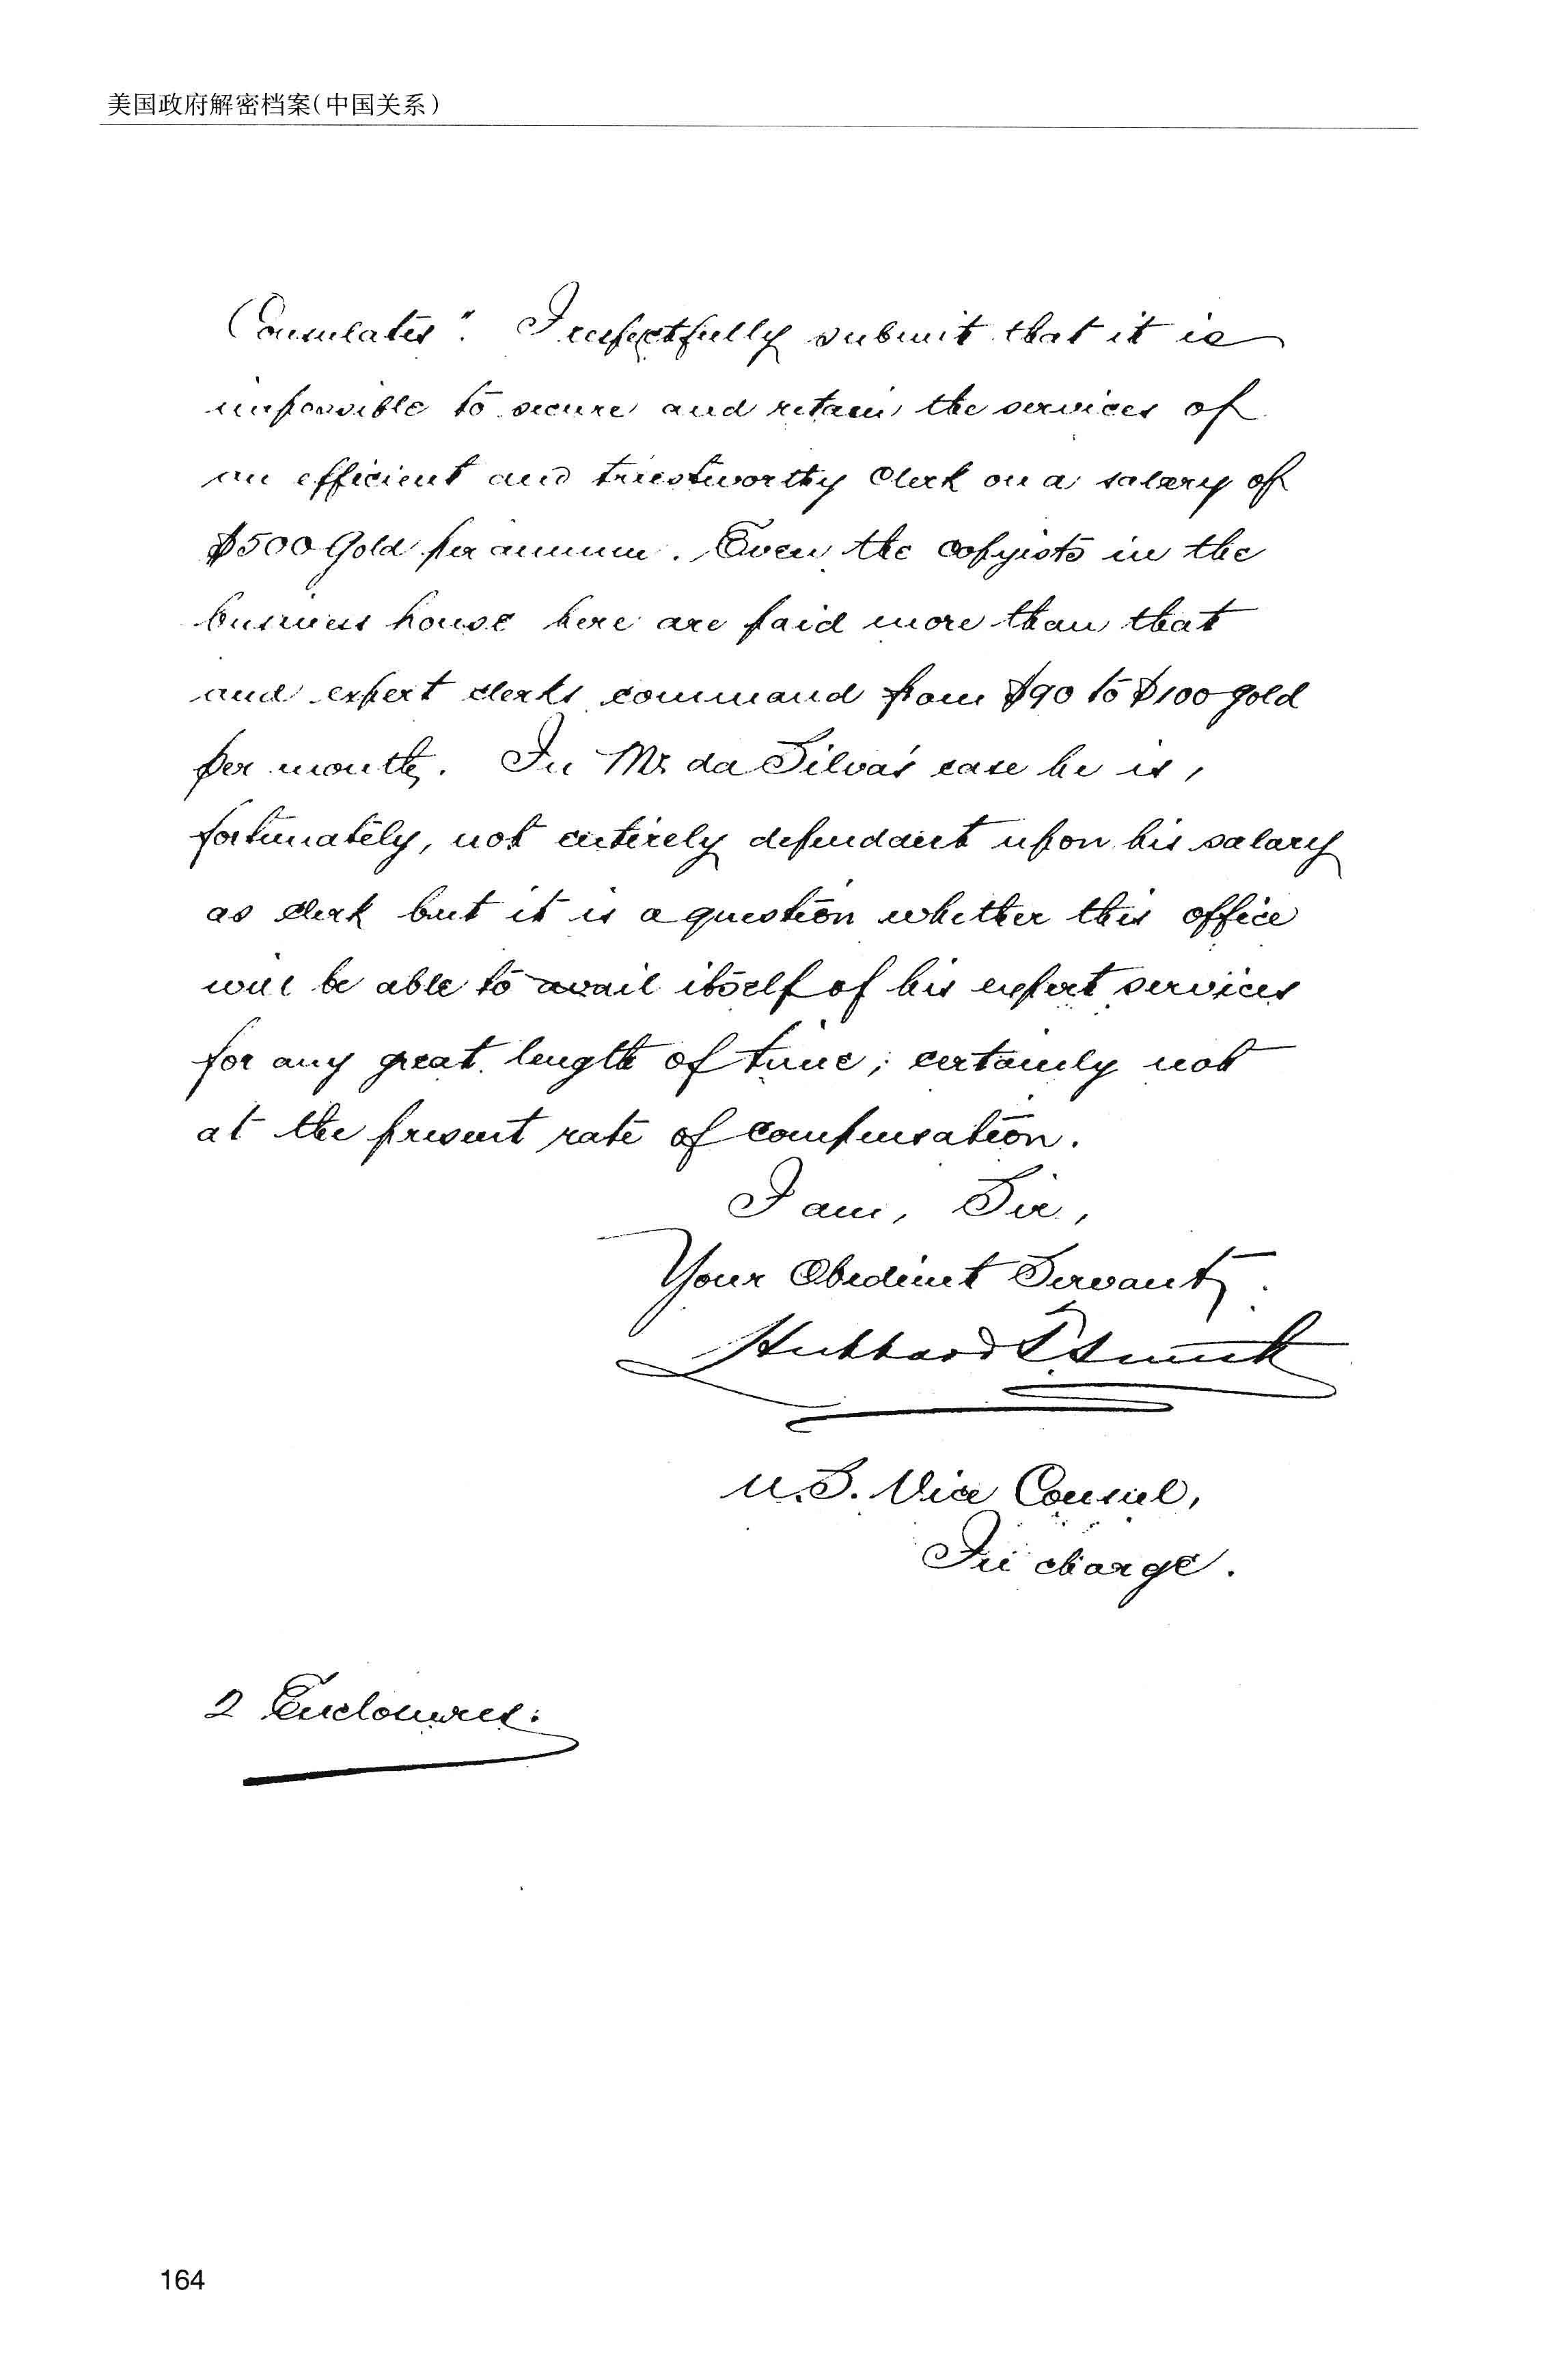 美国政府解密档案(中国关系)
Consulates". I respectfully submit that it is
impossible to secure and retain the services of
an efficient and trustworthy clerk on a salary of
$500 Gold per annum. Even the copyists in the
business house here are paid more than that
and expert clerks command from $90 to $100 gold
per month. In Mr da Silva's case he is,
fortunately, not entirely dependant upon his salary
as clerk but it is a question whether this office
will be able to avail itself of his expert services
for any great length of time; certainly not
at the present rate of compensation.
I am, Sir,
Your Obedient Servant,
Hubbard T. Smith
U.S. Vice Consul,
In charge.
2 Enclosures:
164